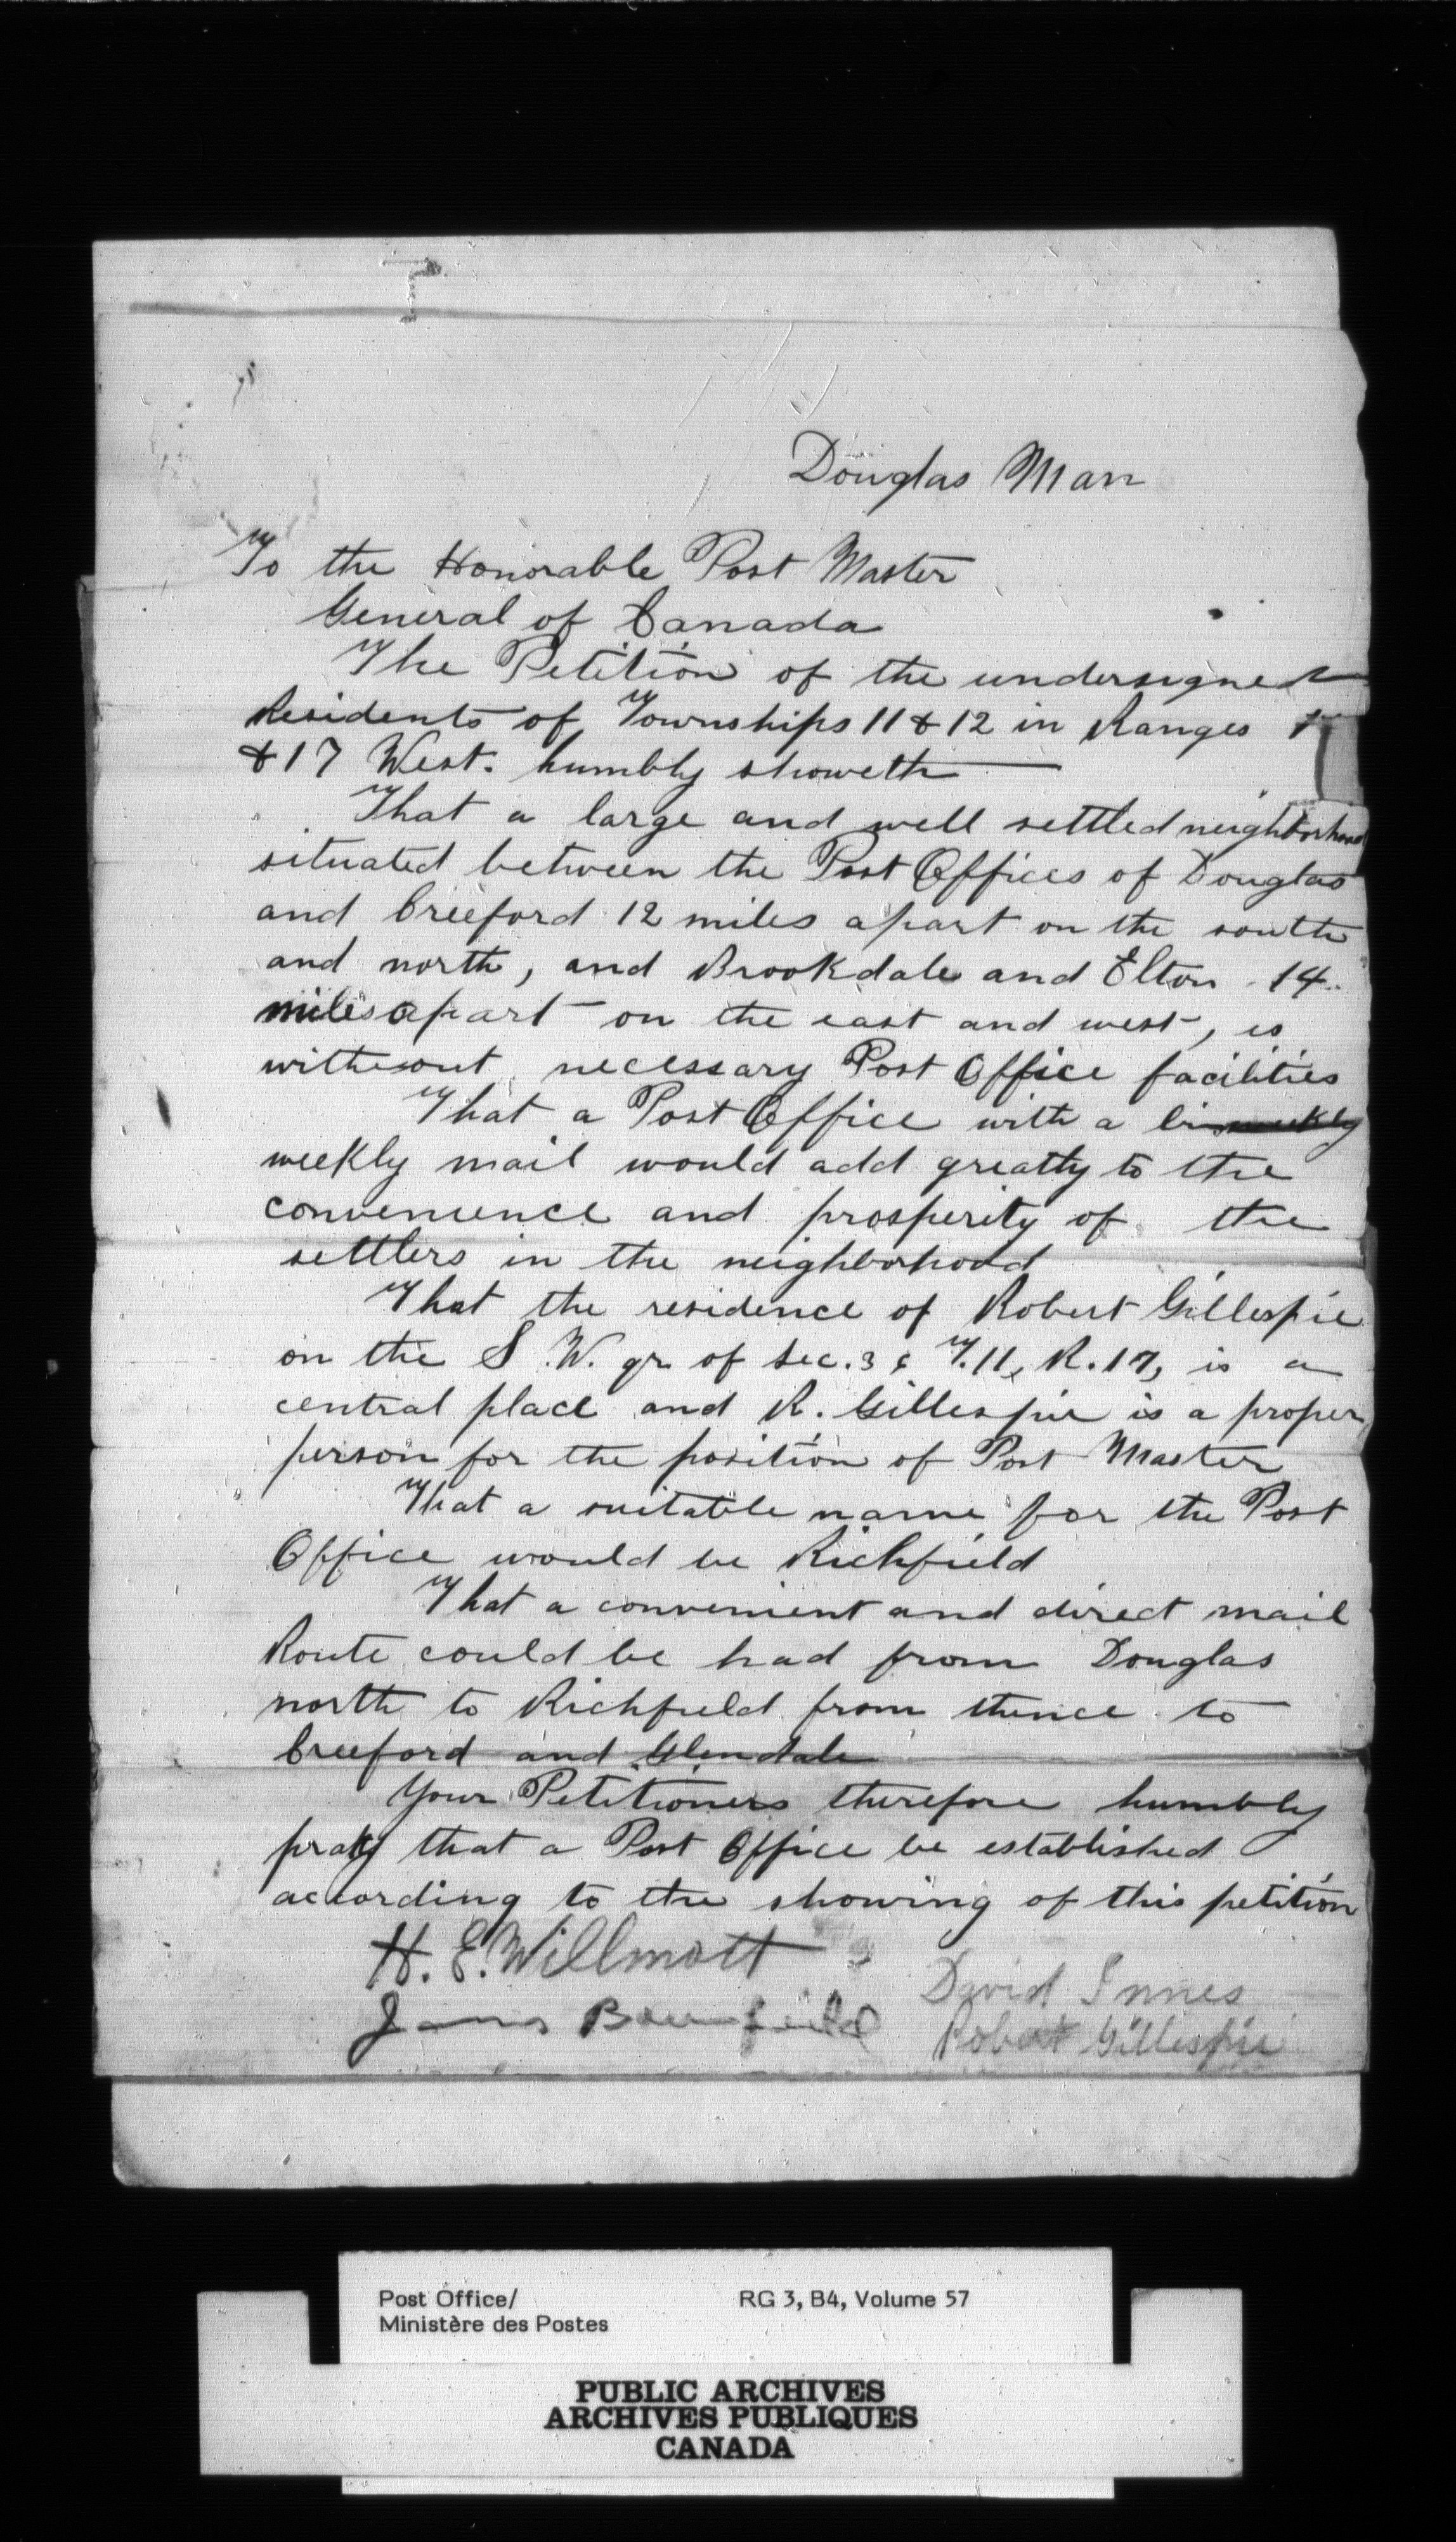 Douglas Man
To the Honorable Post Master
General of Canada
The Petition of the undersigned
Residents of Townships 11 & 12 in Ranges
& 17 West. humbly showeth
That a large and well settled neighborhood
situated between the Post Offices of Douglas
and Creeford 12 miles apart on the south
and north, and Brookdale and Elton 14
miles apart on the east and west, is
without necessary Post Office facilities
That a Post Office with a bi
weekly mail would add greatly to the
convenience and prosperity of the
settlers in the neighborhood
That the residence of Robert Gillespie
on the S.W. qr. of Sec. T.11, R.17, is a
central place and R. Gillespie is a proper
person for the position of Post Master
That a suitable name for the Post
Office would be Richfield
That a convenient and direct mail
Route could be had from Douglas
north to Richfield from thence to
Creeford and Glendale
Your Petitioners therefore humbly
pray that a Post Office be established
according to the showing of this petition
H. E. Willmott
David Innes
James
Robert Gillespie
Post Office/
Ministère des Postes
RG 3, B4, Volume 57
PUBLIC ARCHIVES
ARCHIVES PUBLIQUES
CANADA